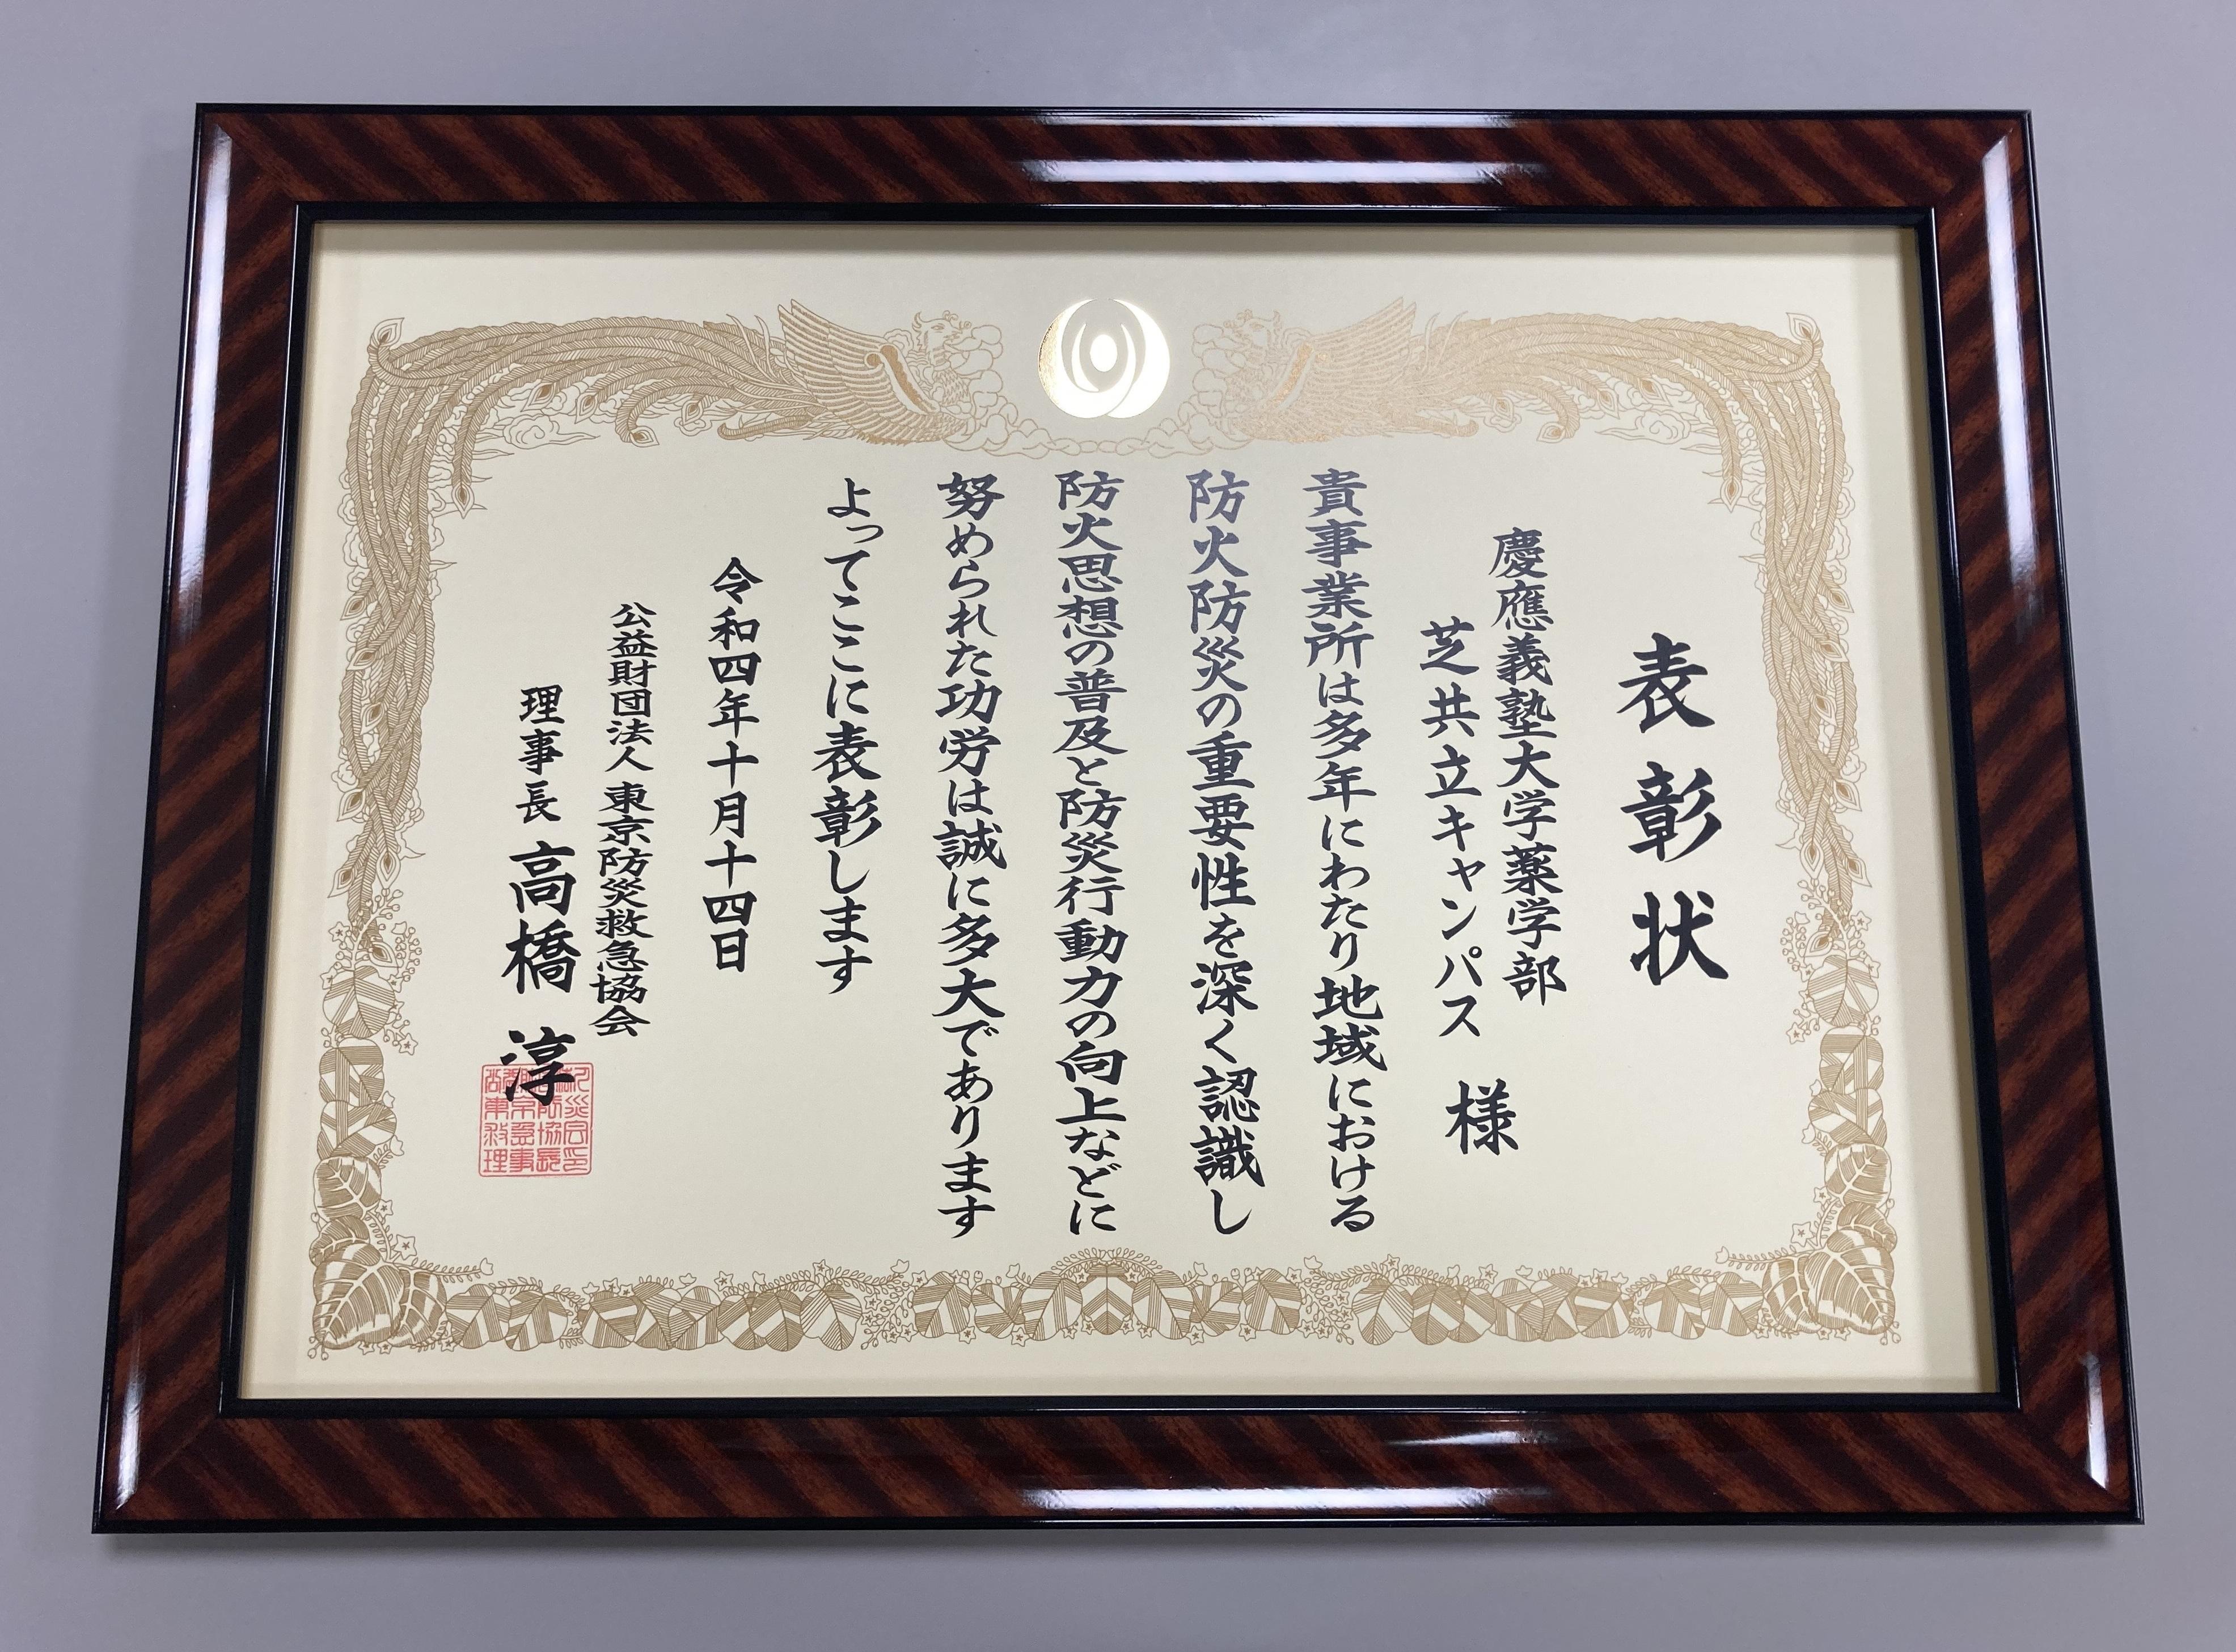 表彰状
慶應義塾大学薬学部
芝共立キャンパス 様
貴事業所は多年にわたり地域における
防火防災の重要性を深く認識し
防火思想の普及と防災行動力の向上などに
努められた功労は誠に多大であります
よってここに表彰します
令和四年十月十四日
公益財団法人 東京防災救急協会
理事長 高橋 淳